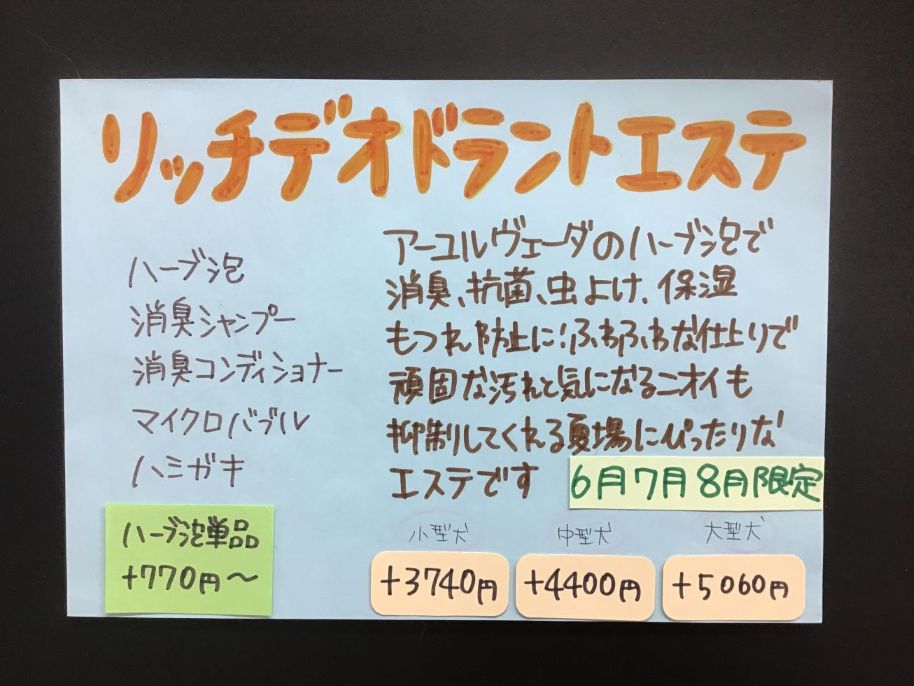 リッチデオドラントエステ
ハーブ泡
消臭シャンプー
消臭コンディショナー
マイクロバブル
ハミガキ
アーユルヴェーダのハーブ泡で
消臭、抗菌、虫よけ、保湿
もつれ防止に!ふわふわな仕上りで
頑固な汚れと気になるニオイも
抑制してくれる夏場にぴったりな
エステです
6月7月8月限定
ハーブ泡単品
+770円~
小型犬
中型犬
大型犬
+3740円
+4400円
+5060円